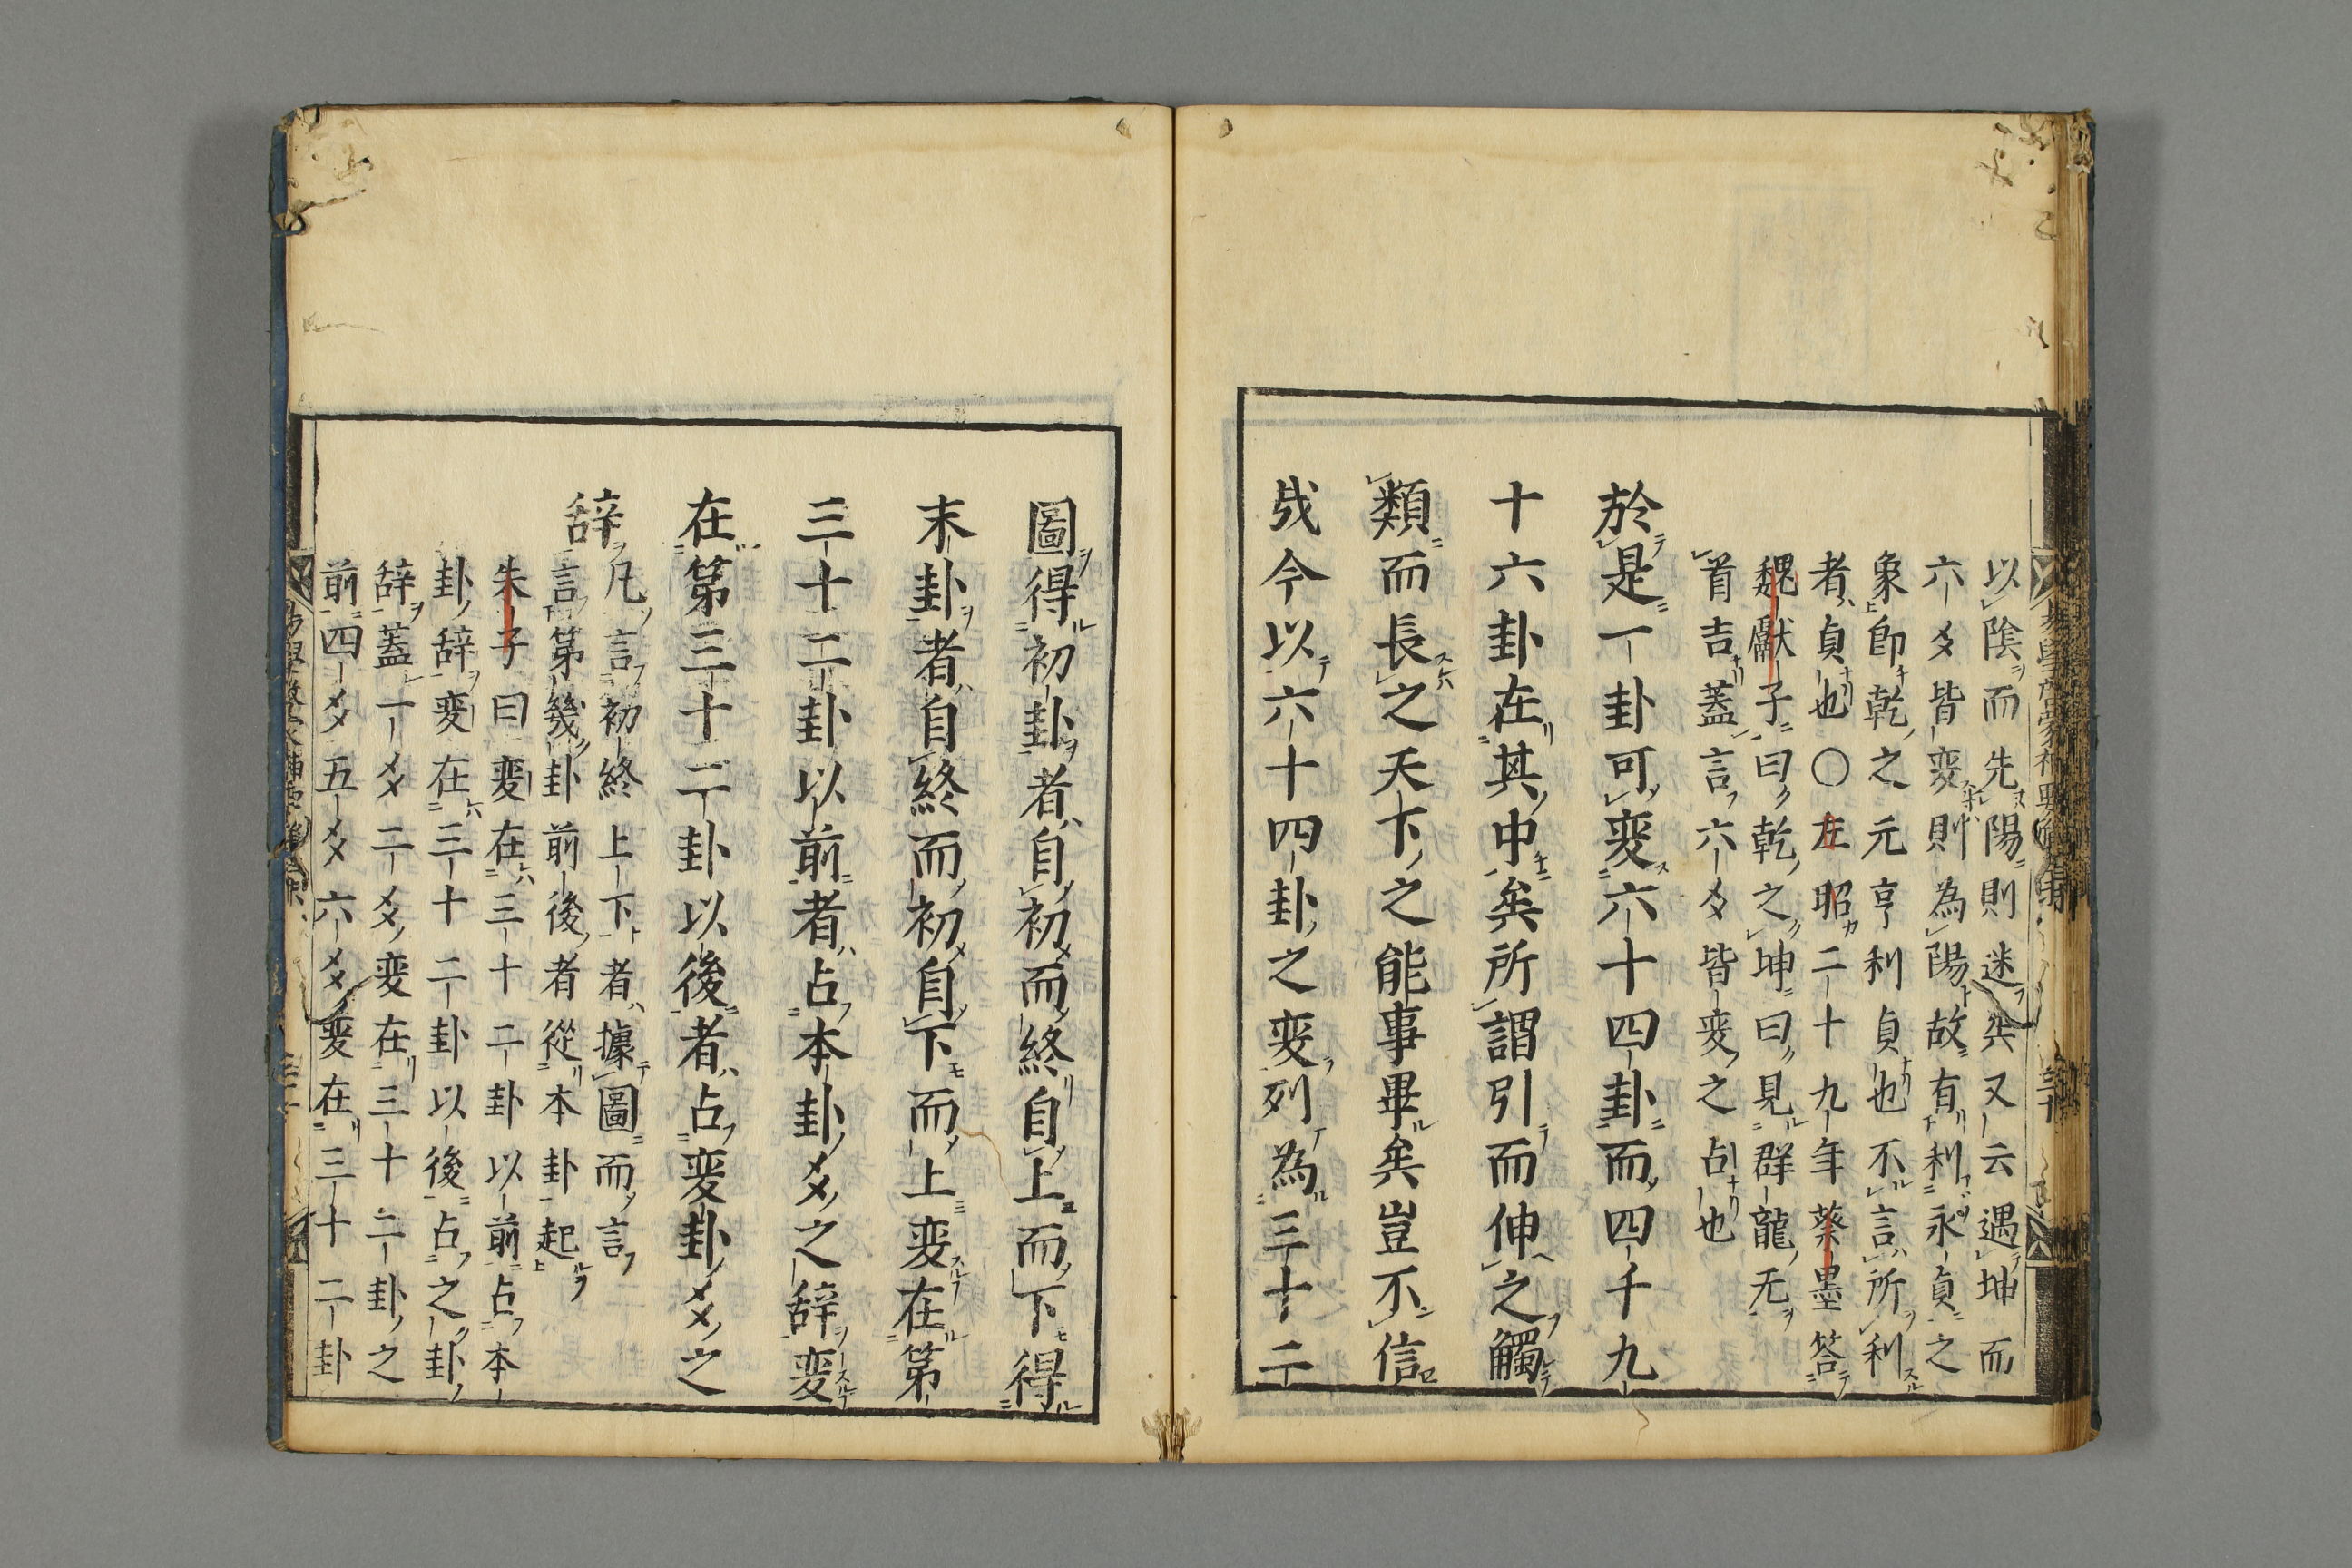 以陰而先陽則迷矣又云遇坤而
六爻皆変則為陽故有利永貞之
象即乾之元亨利貞也不言所利
者貞也〇左昭二十九年蔡墨答
魏獻子曰乾之坤曰見群龍无
首吉蓋言六爻皆変之占也
於是一卦可変六十四卦而四千九
十六卦在其中矣所謂引而伸之觸
類而長之天下之能事畢矣豈不信
哉今以六十四卦之変列為三十二
圖得初卦者自初而終自上而下得
末卦者自終而初自下而上変在第
三十二卦以前者占本卦爻之辞変
在第三十二卦以後者占変卦爻之
辞
凡言初終上下者據圖而言
言第幾卦前後者從本卦起
朱子曰変在三十二卦以前占本
卦辞変在三十二卦以後占之卦
辞蓋一爻二爻変在三十二卦之
前四爻五爻六爻変在三十二卦